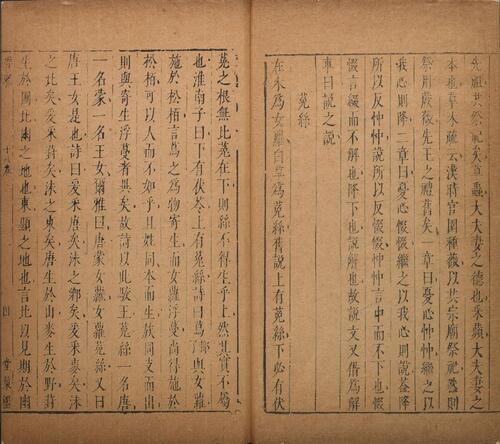 先祖共祭祀矣草蟲大夫妻之德也采蘋大夫妻之
本也草木疏云漢時官園種薇以共宗廟祭祀盖則
祭用蕨薇先王之禮舊矣一章曰憂心忡忡繼之以
我心則降二章曰憂心惙惙繼之以我心則說蓋降
所以反忡忡說所以反惙惙忡忡言中而不下也惙
惙言綴而不解也降下也說解也故說文又借為解
車曰說之說
菟絲
在木為女蘿在草為菟絲舊說上有菟絲下必有伏
菟之根無此菟在下則絲不得生乎上然其實不屬
也淮南子曰下有伏苓上有菟絲詩曰蔦與女蘿
施於松栢言蔦之為物寄生而女蘿浮蔓尚得施於
松栢可以人而不如乎且姓同本而生族同支而出
則與寄生浮蔓者異矣故詩以此駮王菟絲一名唐
一名蒙一名王女爾雅曰唐蒙女蘿女蘿菟絲又曰
唐王女是也詩曰爰采唐矣沬之鄉矣爰采麥矣沬
之北矣爰采葑矣沬之東矣唐生於山麥生於野葑
生於圃北幽之地也東顯之地也言此以見期於幽
四
堂策檻